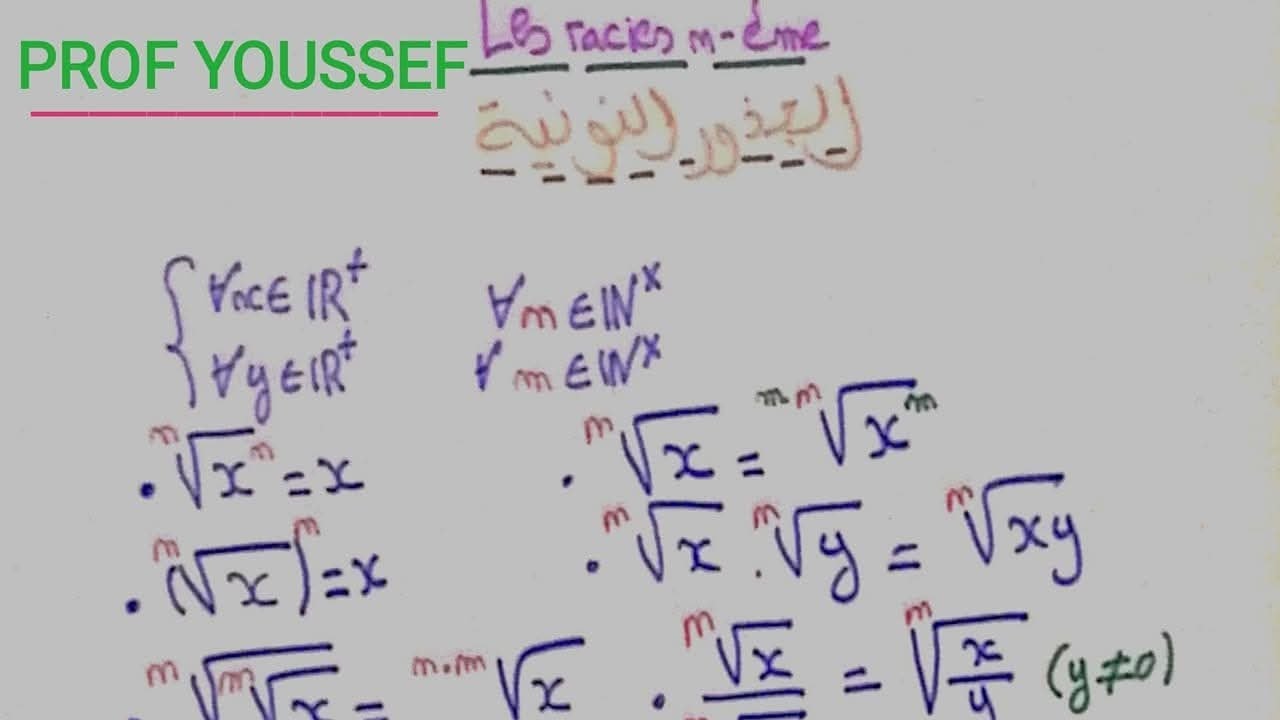 PROF YOUSSEF
Les racies n-ème
الجذور النونية
∀x∈IR⁺ ∀m∈IN*
∀y∈IR⁺ ∀n∈IN*
• ⁿ√xⁿ = x
• ⁿ√x = ⁿᵐ√xᵐ
• (ⁿ√x)ⁿ = x
• ⁿ√x . ⁿ√y = ⁿ√xy
ⁿ√ᵐ√x = ⁿ·ᵐ√x
• ⁿ√x = ⁿ√x/y (y≠0)